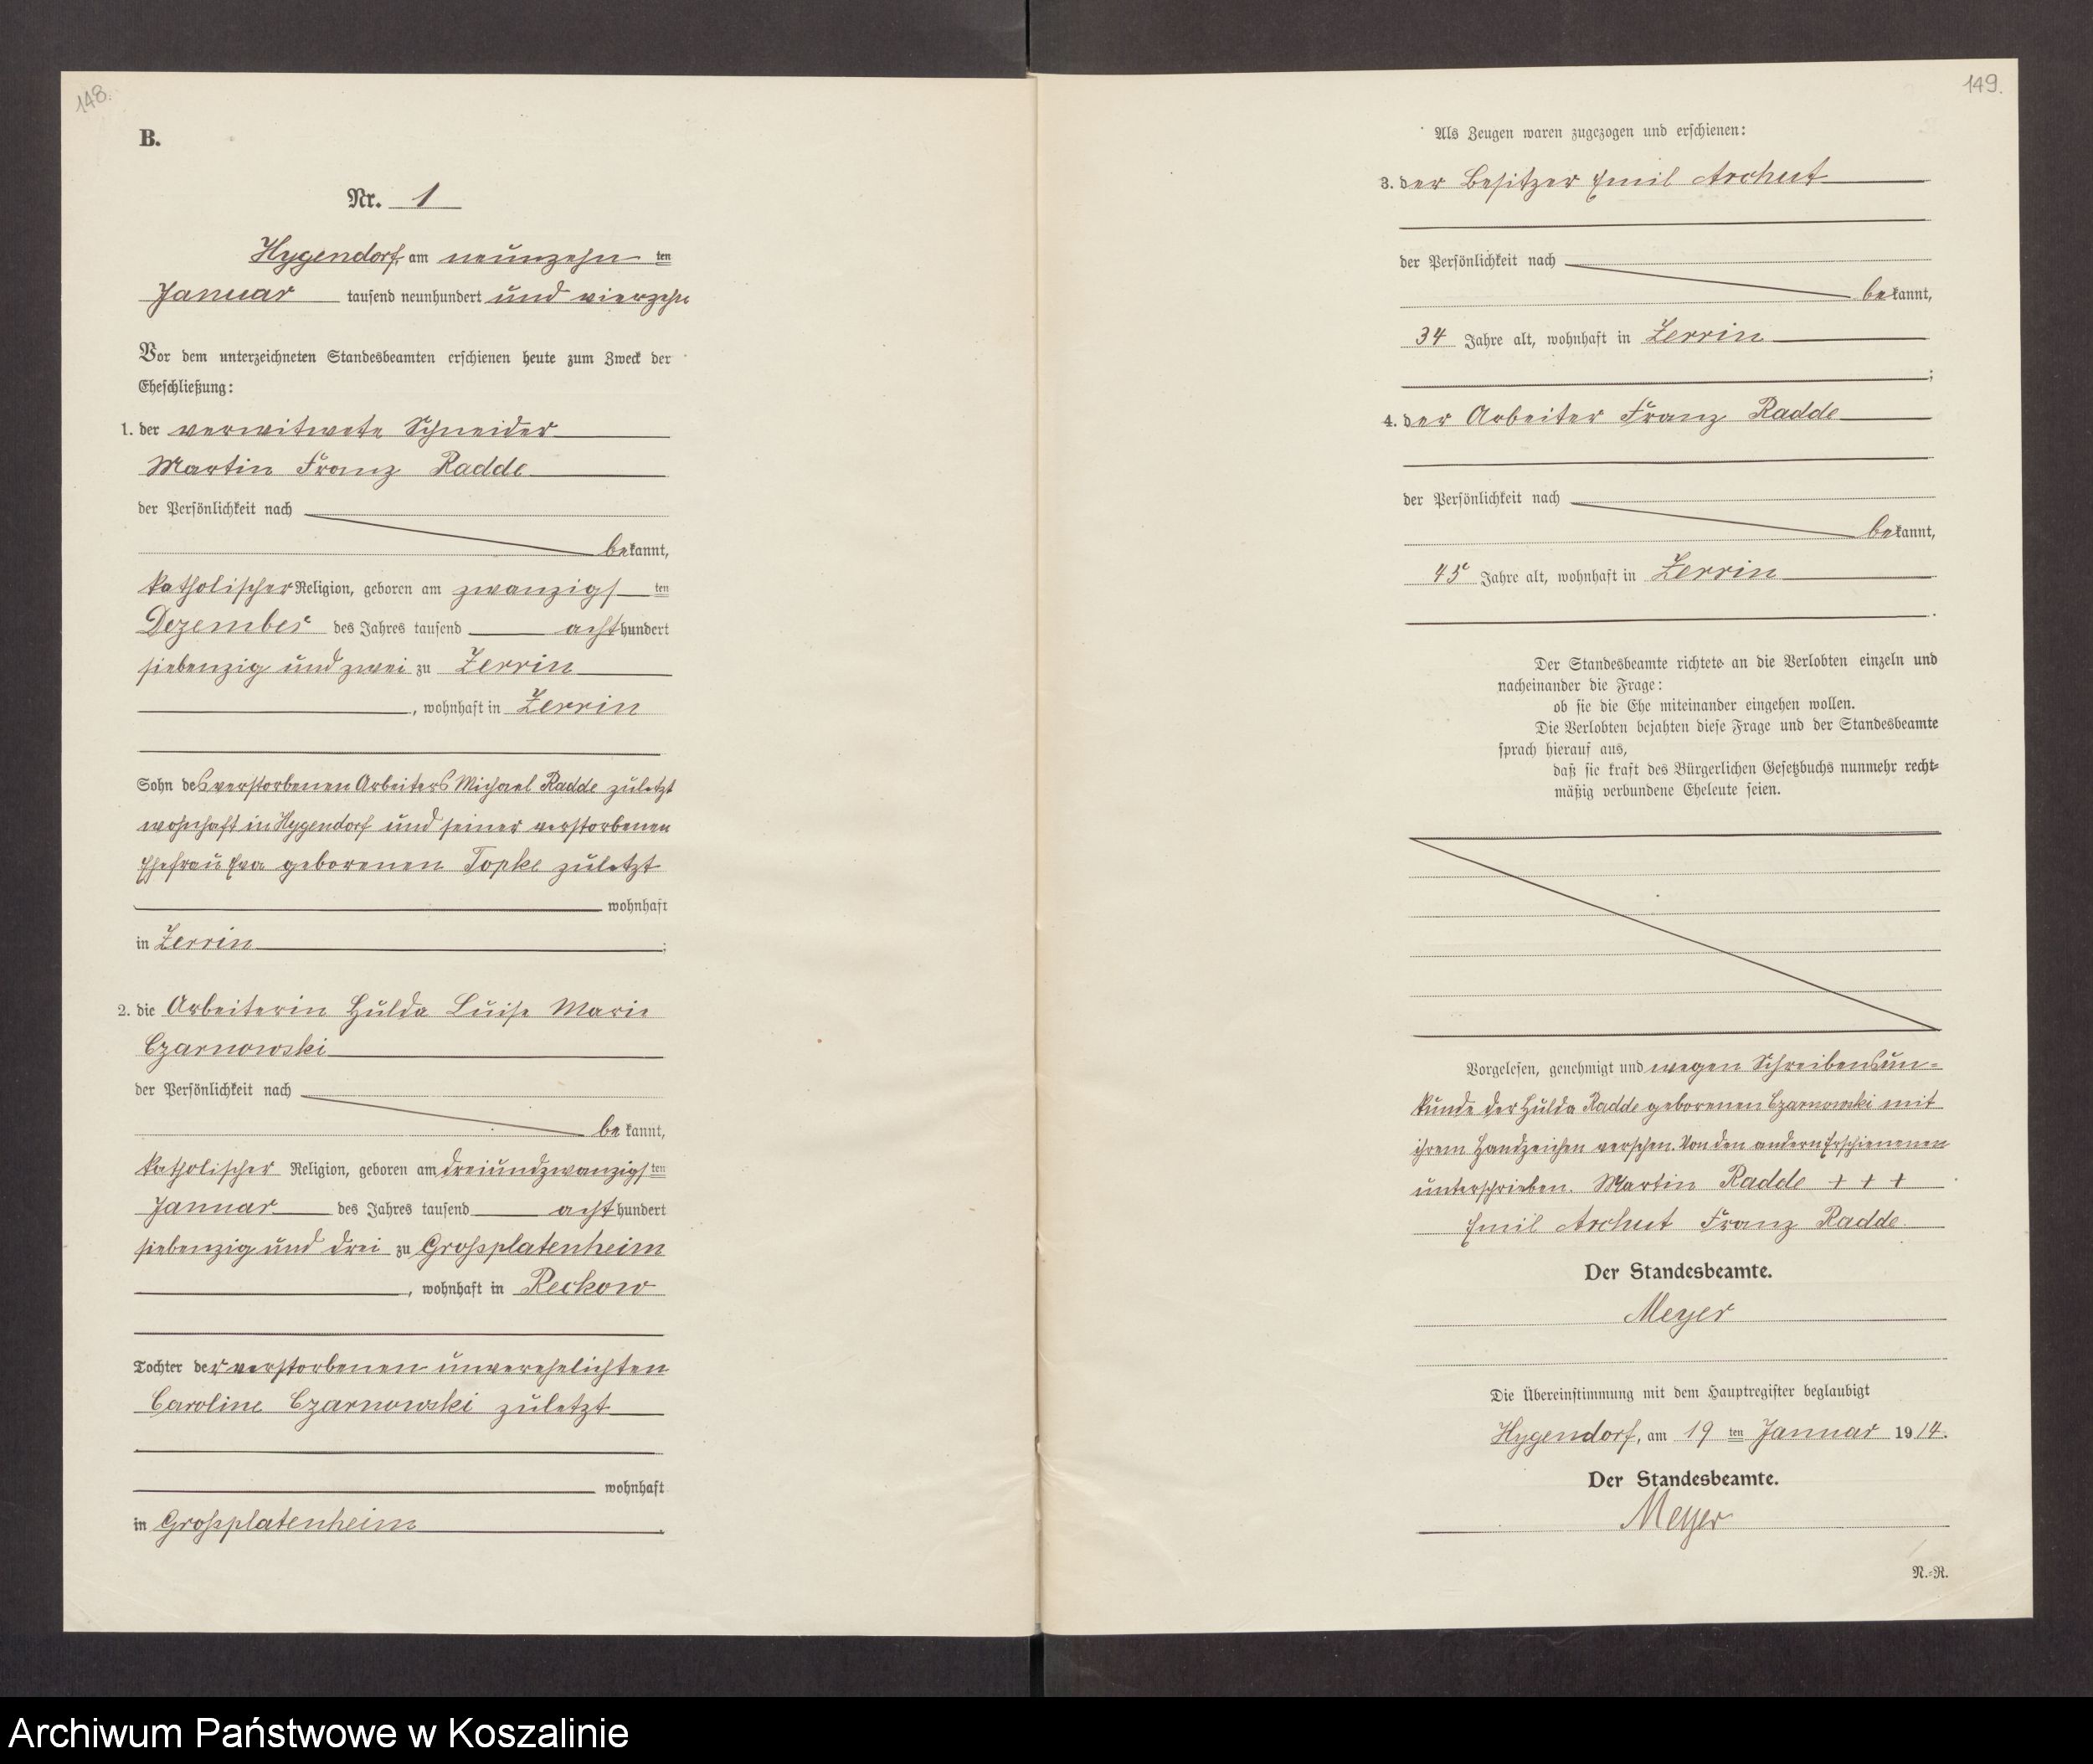 148.
B.
Nr. 1
Hygendorf, am neunzehn ten
Januar tausend neunhundert und vierzehn
Vor dem unterzeichneten Standesbeamten erschienen heute zum Zweck der
Eheschließung:
1. der verwitwete Schneider
Martin Franz Radde
der Persönlichkeit nach
bekannt,
katholischer Religion, geboren am zwanzigs ten
Dezember des Jahres tausend acht hundert
siebenzig und zwei zu Zerrin
, wohnhaft in Zerrin
Sohn des verstorbenen Arbeiters Michael Radde zuletzt
wohnhaft in Hygendorf und seiner verstorbenen
Ehefrau Eva geborenen Topke zuletzt
wohnhaft
in Zerrin ;
2. die Arbeiterin Hulda Luise Marie
Czarnowski
der Persönlichkeit nach
bekannt,
katholischer Religion, geboren am dreiundzwanzigs ten
Januar des Jahres tausend acht hundert
siebenzig und drei zu Grossplatenheim
, wohnhaft in Reckow
Tochter der verstorbenen unverehelichten
Caroline Czarnowski zuletzt
wohnhaft
in Grossplatenheim .
149.
Als Zeugen waren zugezogen und erschienen:
3. der Besitzer Emil Archut
der Persönlichkeit nach
bekannt,
34 Jahre alt, wohnhaft in Zerrin
;
4. der Arbeiter Franz Radde
der Persönlichkeit nach
bekannt,
45 Jahre alt, wohnhaft in Zerrin
.
Der Standesbeamte richtete an die Verlobten einzeln und
nacheinander die Frage:
ob sie die Ehe miteinander eingehen wollen.
Die Verlobten bejahten diese Frage und der Standesbeamte
sprach hierauf aus,
daß sie kraft des Bürgerlichen Gesetzbuchs nunmehr recht-
mäßig verbundene Eheleute seien.
Vorgelesen, genehmigt und wegen Schreibensun-
kunde der Hulda Radde geborenen Czarnowski mit
ihrem Handzeichen versehen. Von den andern Erschienenen
unterschrieben. Martin Radde + + +
Emil Archut Franz Radde.
Der Standesbeamte.
Meyer
Die Übereinstimmung mit dem Hauptregister beglaubigt
Hygendorf, am 19 ten Januar 1914.
Der Standesbeamte.
Meyer
N.-R.
Archiwum Państwowe w Koszalinie